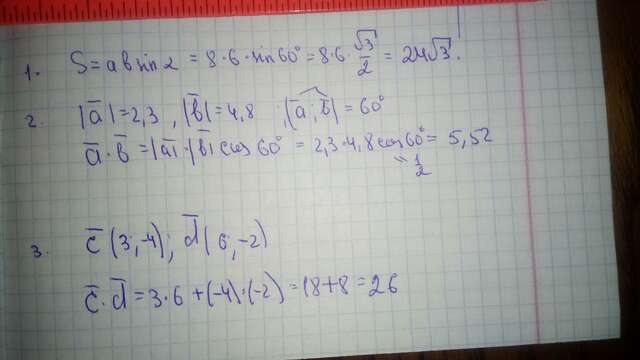 1. S = a b sin α = 8·6·sin60° = 8·6·√3/2 = 24√3.
2. |a̅| = 2,3 , |b̅| = 4,8 (a̅; b̅) = 60°
a̅·b̅ = |a̅|·|b̅| cos 60° = 2,3·4,8 cos60° = 5,52
" 1/2
3. c̅ (3;-4); d̅ (6;-2)
c̅·d̅ = 3·6 + (-4)·(-2) = 18+8 = 26